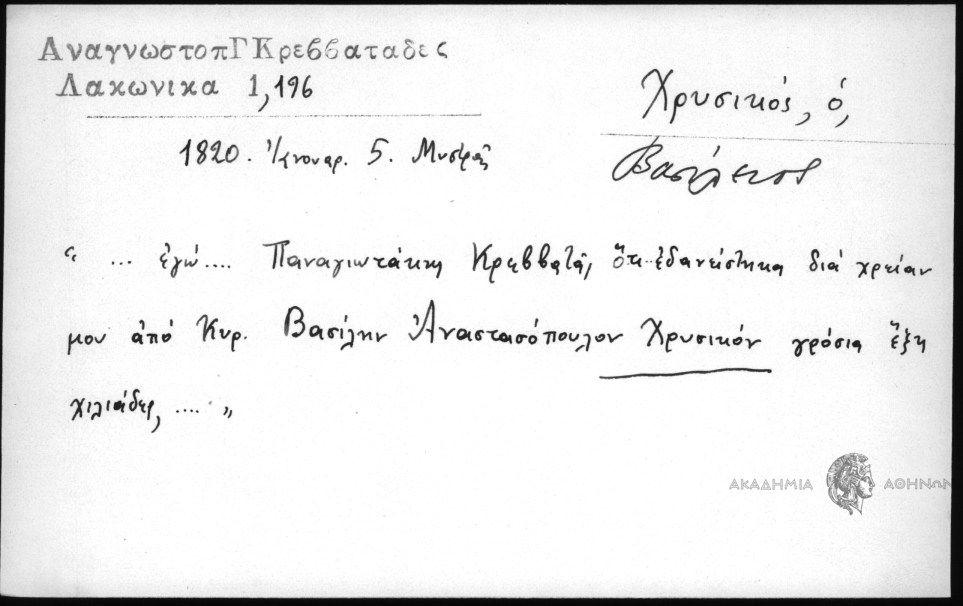 ΑναγνωστοπΓΚρεββαταδες
Λακωνικα 1,196
Χρυσικός, ὁ,
1820. Ἰανουαρ. 5. Μυστρᾶ
Βασίλειος
"... ἐγώ.... Παναγιωτάκης Κρεββατᾶς, ὅτι ἐδανείστηκα διά χρείαν
μου ἀπό Κυρ. Βασίλην Ἀναστασόπουλον Χρυσικόν γρόσια ἕξη
χιλιάδες, .... "
ΑΚΑΔΗΜΙΑ ΑΘΗΝΩΝ